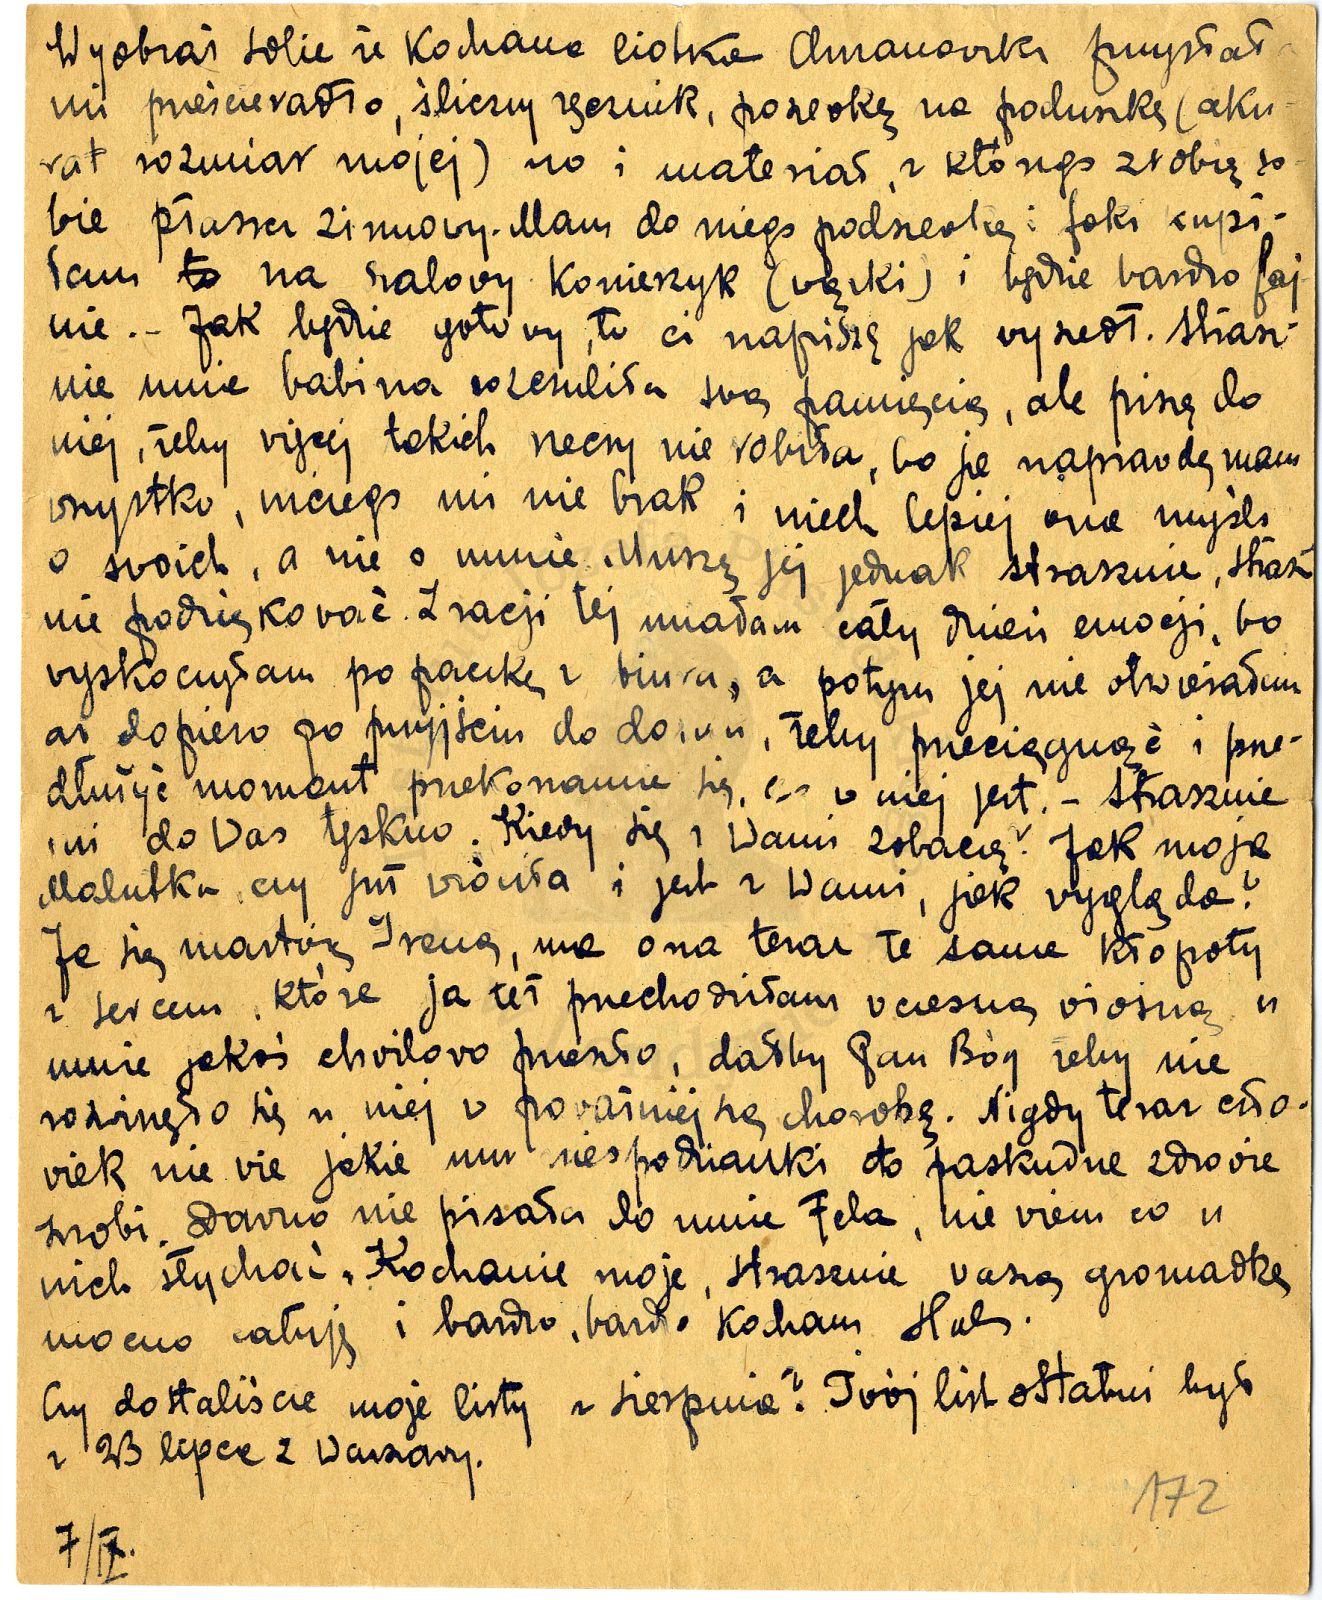 Wyobraź sobie że Kochana Ciotka Chrzanowska przysłała
mi prześcieradło, śliczny ręcznik, poszewkę na poduszkę (aku-
rat rozmiar mojej) no i materiał, z którego zrobię so-
bie płaszcz zimowy. Mam do niego podszewkę i foki kupi-
łam to na szalowy Kołnierzyk (wązki) i będzie bardzo faj-
nie. - Jak będzie gotowy, to ci napiszę jak wyszedł. Strasz-
nie mnie babina rozczuliła swą pamięcią, ale piszę do
niej, żeby więcej takich rzeczy nie robiła, bo ja naprawdę mam
wszystko, niczego mi nie brak i niech lepiej ona myśli
o swoich, a nie o mnie. Muszę jej jednak strasznie, strasz
nie podziękować. Z racji tej miałam cały dzień emocji, bo
wyskoczyłam po paczkę z biura, a potym jej nie otwierałam
aż dopiero po przyjściu do domu, żeby przeciągnąć i prze-
dłużyć moment przekonania się, co w niej jest. - Strasznie
mi do Was tęskno. Kiedy się z Wami zobaczę? Jak moja
Malutka, czy już wróciła i jest z Wami, jak wygląda?
Ja się martwię Ireną, ma ona teraz te same kłopoty
z sercem, które ja też przechodziłam wczesną wiosną u
mnie jakoś chwilowo przeszło, dałby Pan Bóg żeby nie
rozwinęło się u niej w poważniejszą chorobę. Nigdy teraz czło-
wiek nie wie jakie mu niespodzianki to paskudne zdrowie
zrobi. Dawno nie pisała do mnie Fela, nie wiem co u
nich słychać. Kochanie moje, strasznie waszą gromadkę
mocno całuję i bardzo, bardzo Kocham Hala.
Czy dostaliście moje listy z sierpnia? Twój list ostatni był
z 23 lipca z Warszawy.
172
7/IX.